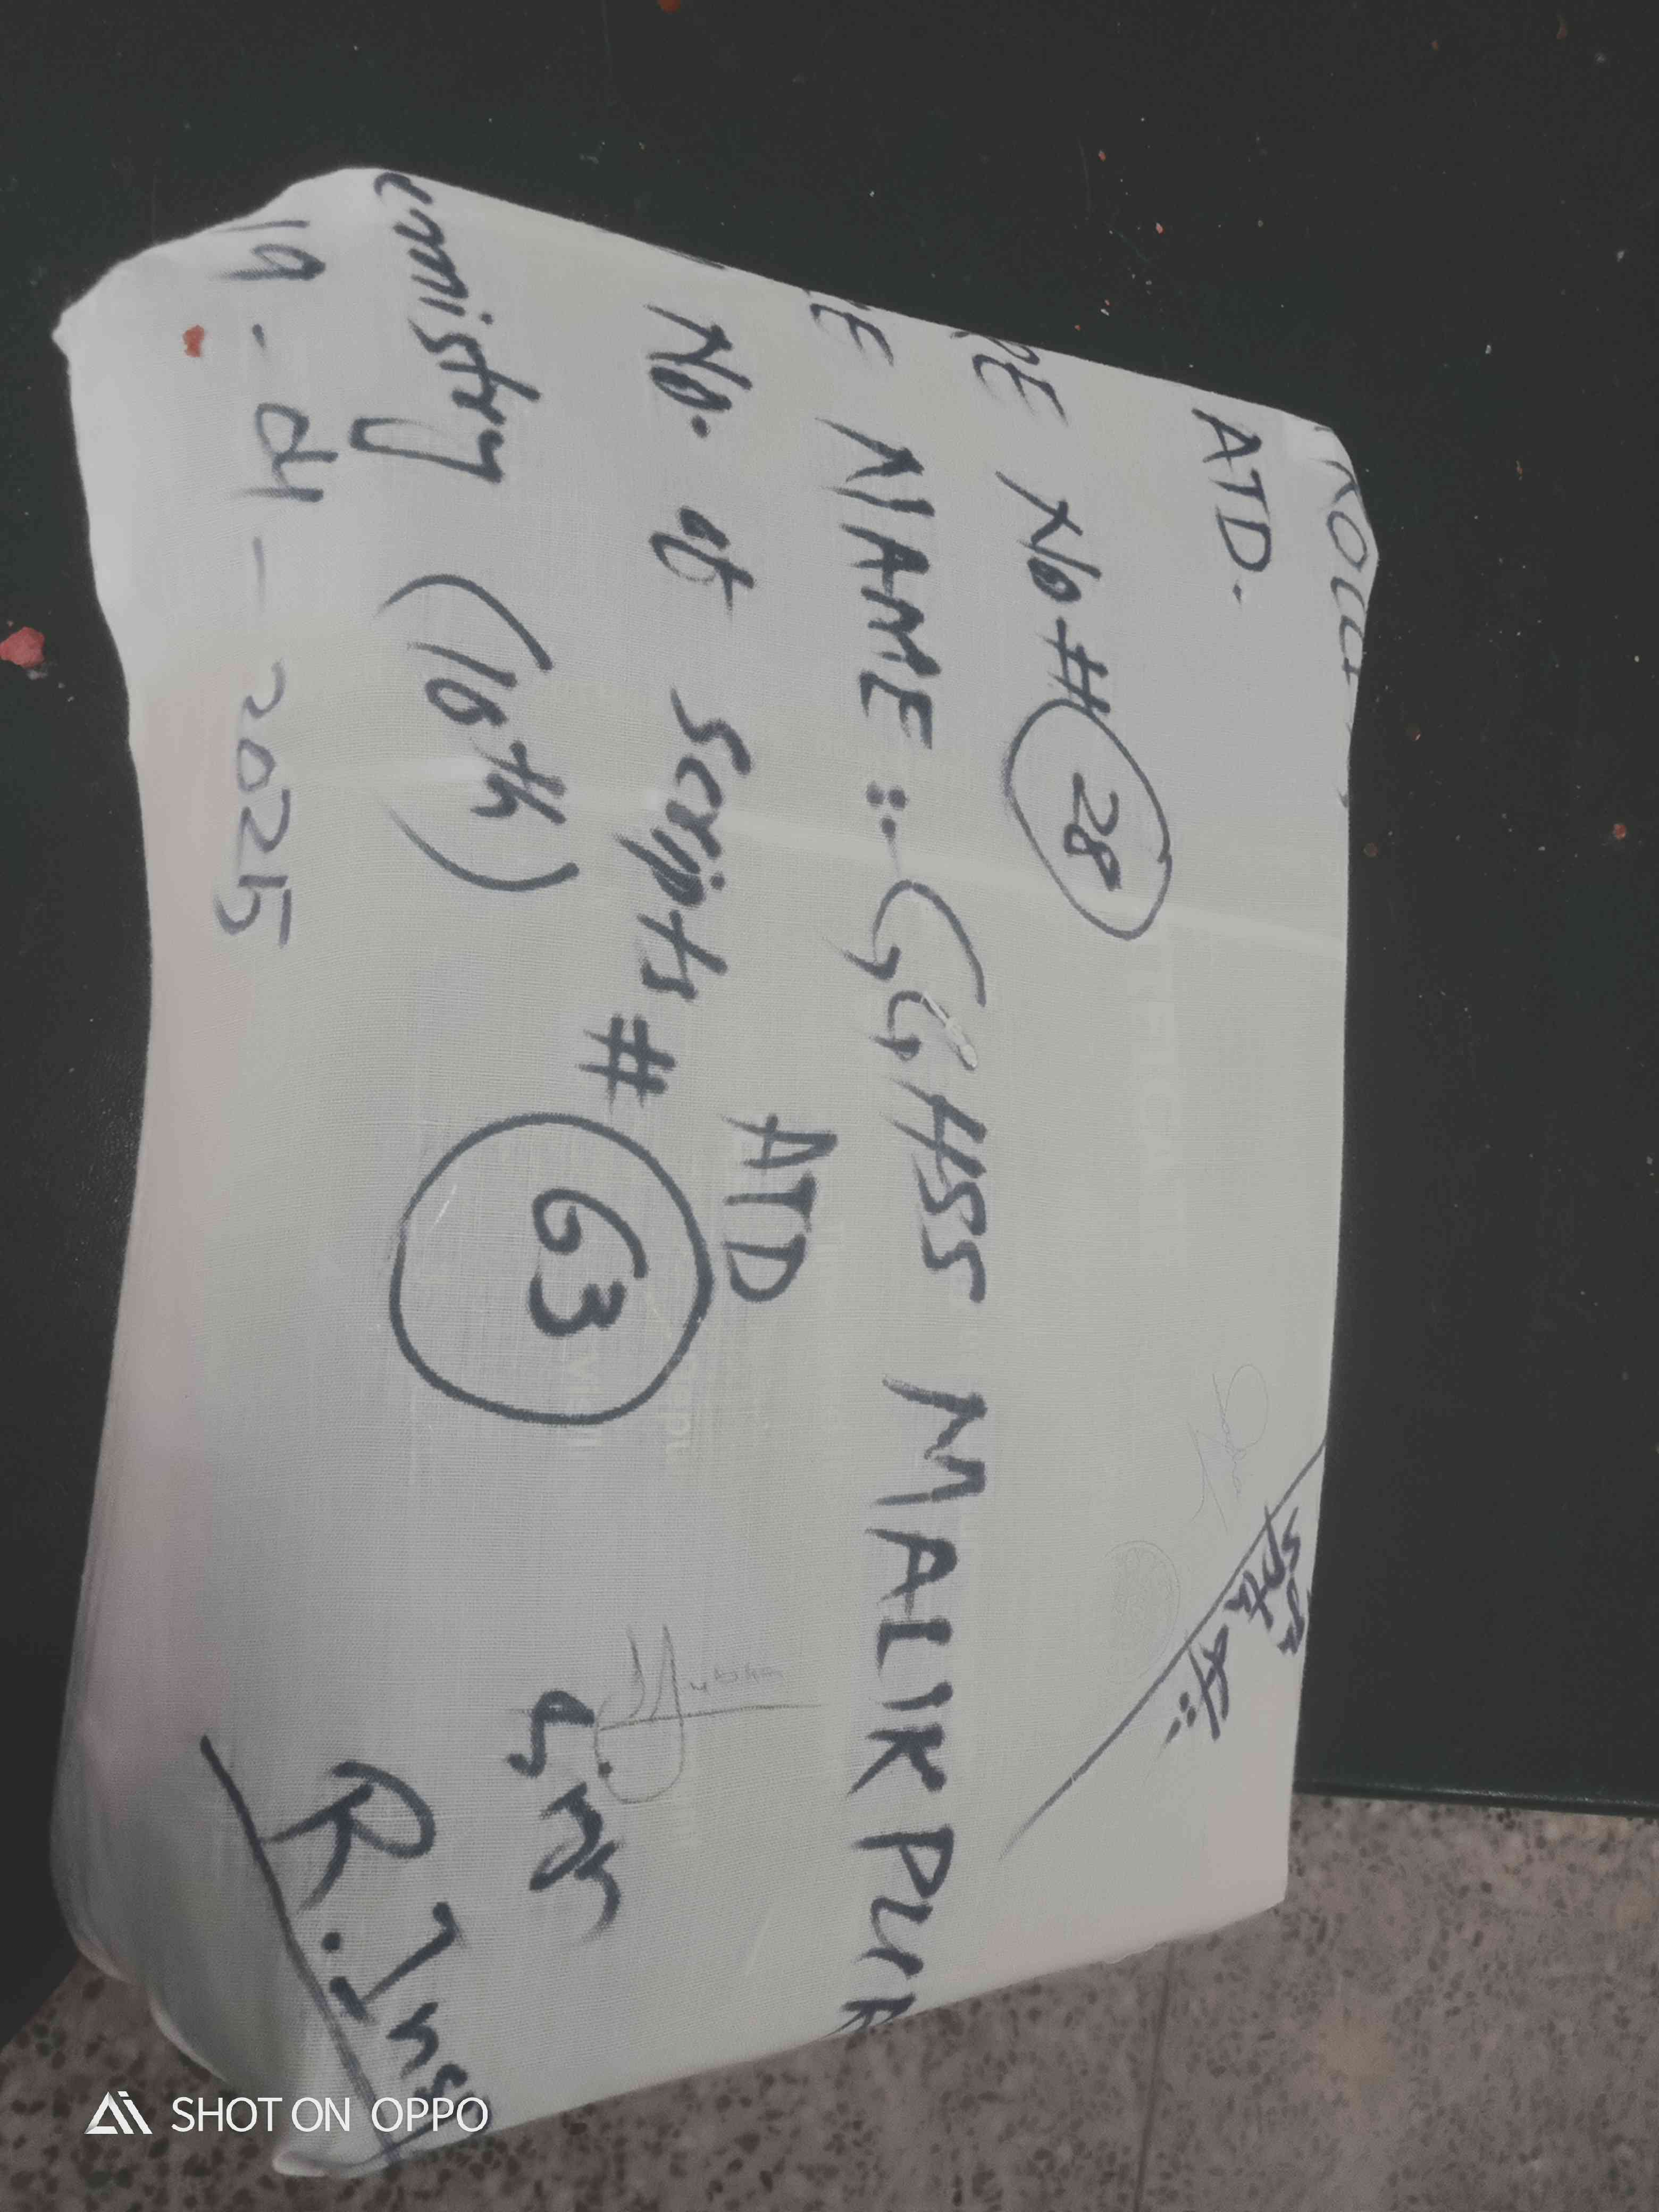 ATD.
No # 28
NAME :- GGHSS MALIKPUR
ATD
No. of Scripts # 63
emistry (10th)
19 - 04 - 2025
R. Ins
SHOT ON OPPO